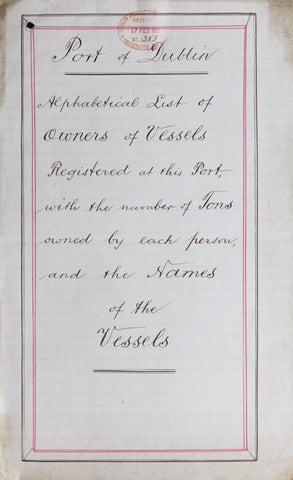 17 FEB 90
Port of Dublin
Alphabetical List of
Owners of Vessels
Registered at this Port,
with the number of Tons
owned by each person,
and the Names
of the
Vessels